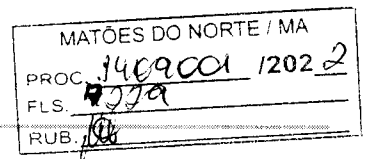 MATÕES DO NORTE / MA
PROC. 1409001 /2022
FLS.
RUB.